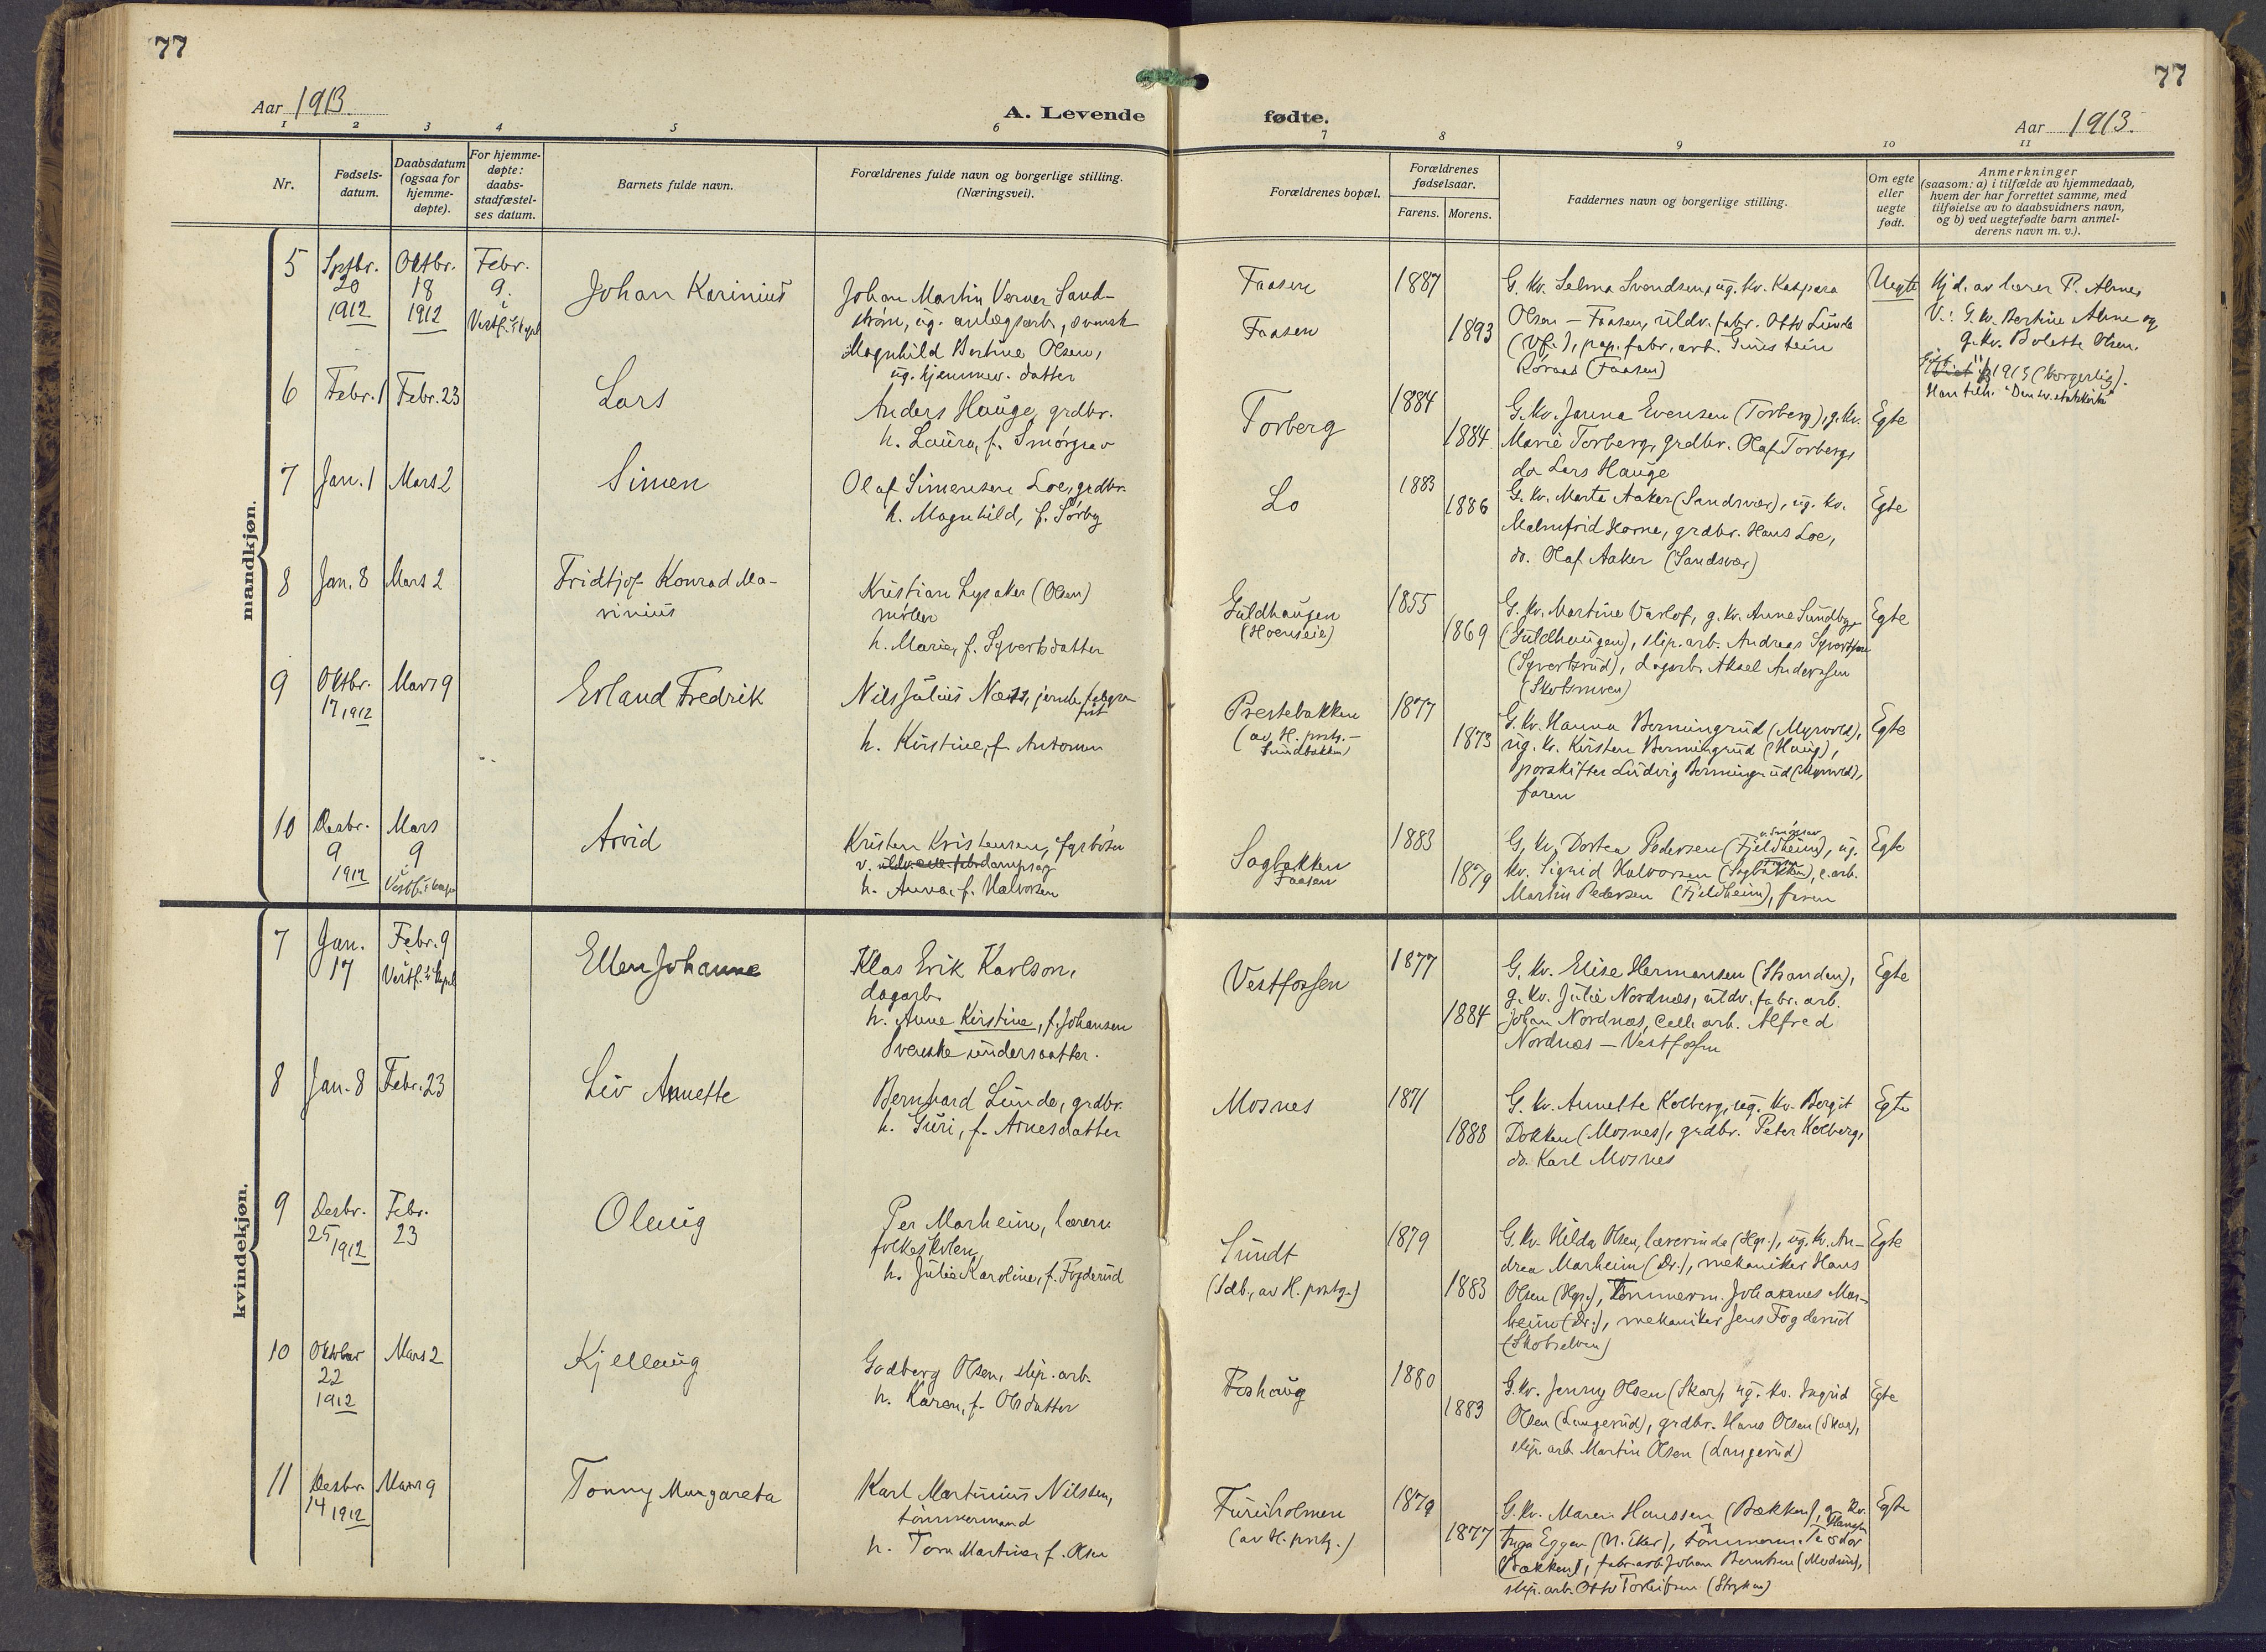 77
77
Aar 1913.
A. Levende
fødte.
Aar 1913.
1 2 3 4 5 6 7 8 9 10 11
Nr.
Fødsels-
datum.
Daabsdatum
(ogsaa for
hjemme-
døpte).
For hjemme-
døpte:
daabs-
stadfæstel-
ses datum.
Barnets fulde navn.
Forældrenes fulde navn og borgerlige stilling.
(Næringsvei).
Forældrenes bopæl.
Forældrenes
fødselsaar.
Farens. Morens.
Faddernes navn og borgerlige stilling.
Om egte
eller
uegte
født.
Anmerkninger
(saasom: a) i tilfælde av hjemmedaab,
hvem der har forrettet samme, med
tilføielse av to daabsvidners navn,
og b) ved uegtefødte barn anmel-
derens navn m. v.).
mandkjøn.
5
Septbr.
20
1912
Oktbr.
18
1912
Febr.
9.
i
Vestf. kapel
Johan Karinius
Johan Martin Verner Sand-
strøm, ug. anlægsarb., svensk
Magnhild Bertine Olsen,
ug. hjemmev. datter
Faasen
Faasen
1887
1893
G. kv. Selma Svendsen, ug. kv. Kaspara
Olsen – Faasen, uldv. fabr. Otto Lunde
(Vf.), pap. fabr. arb.
(Faasen)
Uegte
Hjd. av lærer P. Alme,
V.: G. kv. Bertine Alme og
g. kv. Bolette Olsen.
1913 (borgerlig).
Han tilh. "Den sv. statskirke"
6
Febr. 1
Febr. 23
Lars
Anders Hauge, grdbr.
h. Laura, f. Smørgrav
Torberg
1884
1884
G. kv. Janna Evensen (Torberg), g. kv.
Marie Torberg, grdbr. Olaf Torberg,
do Lars Hauge
Egte
7
Jan. 1
Mars 2
Simen
Olaf Simensen Loe, grdbr.
h. Magnhild, f. Sørby
Lo
1883
1886
G. kv. Marta Aaker (Sandsvær), ug. kv.
Malmfrid Horne, grdbr. Hans Loe,
do. Olaf Aaker (Sandsvær)
Egte
8
Jan. 8
Mars 2
Fridtjof Konrad Ma-
rinius
Kristian Lysaker (Olsen)
møller
h. Marie, f. Syvertsdatter
Guldhaugen
(Hoenseie)
1855
1869
G. kv. Martine Varlof, g. kv. Anne Sundby
(Guldhaugen), slip. arb. Andreas Syvertsen
(Syvertsrud), dagarb. Aksel Anderssen
(Skotsmoen)
Egte
9
Oktbr.
17 1912
Mars 9
Erland Fredrik
Nils Julius Næss, jernb. telegra-
fist
h. Kirstine, f. Antonsen
Prestebakken
(av H. prstg. –
Sundbakken)
1877
1873
G. kv. Hanna Bermingrud (Myrvold),
ug. kv. Kirsten Bermingrud (Haug),
porskifter Ludvig Bermingrud (Myrvold),
faren
Egte
10
Desbr.
9
1912
Mars
9
i
Vestf. kapel
Arvid
Kristen Kristensen, fyrbøter
v. dampsag
h. Anna, f. Halvorsen
Sagbakken
Faasen
1883
1879
v. Smørgrav
G. kv. Dortea Pedersen (Fjeldheim), ug.
kv. Sigrid Halvorsen (Sagbakken), c. arb.
Martin Pedersen (Fjeldheim), faren
Egte
kvindekjøn.
7
Jan.
17
Febr. 9
i
Vestf. kapel
Ellen Johanne
Klas Erik Karlson,
dagarb.
h. Anne Kirstine, f. Johansen
Svenske undersaatter.
Vestfossen
1877
1884
G. kv. Elise Hermansen (Stranden),
g. kv. Julie Nordnæs, uldv. fabr. arb.
Johan Nordnæs, cell. arb. Alfred
Nordnæs – Vestfossen
Egte
8
Jan. 8
Febr. 23
Liv Annette
Bernhard Lunde, grdbr.
h. Guri, f. Arnesdatter
Mosnes
1871
1888
G. kv. Annette Kolberg, ug. kv. Bergit
Dokken (Mosnes), grdbr. Peter Kolberg,
do. Karl Mosnes
Egte
9
Desbr.
25 1912
Febr.
23
Olaug
Per Marheim, lærer v.
folkeskolen,
h. Julie Karoline, f. Fogderud
Sundt
(Sdb., av H. prstg.)
1879
1883
G. kv. Hilda Olsen, lærerinde (Hgs.), ug. kv. An-
drea Marheim (Dr.), mekaniker Hans
Olsen (Hgs.), Tømmerm. Johannes Mar-
heim (Dr.), mekaniker Jens Fogderud
(Skotselven)
Egte
10
Oktober
22
1912
Mars 2
Kjellaug
Godberg Olsen, slip. arb.
h. Karen, f. Olsdatter
Foshaug
1880
1883
G. kv. Jenny Olsen (Skar), ug. kv. Ingrid
Olsen (Langerud), grdbr. Hans Olsen (Skar),
slip. arb. Martin Olsen (Langerud)
Egte
11
Desbr.
14 1912
Mars 9
Tonny Margareta
Karl Martinius Nilssen,
tømmermand
h. Tora Martine, f. Olsen
Furuholmen
(av H. prstg.)
1879
1877
G. kv. Maren Hanssen (Bækken), g. kv.
Inga Eggen (N. Eker), tømmerm. Teodor Hansen
(Bækken), fabr. arb. Johan Berntsen (Modum),
slip. arb. Otto Torleifsen (Stryken)
Egte